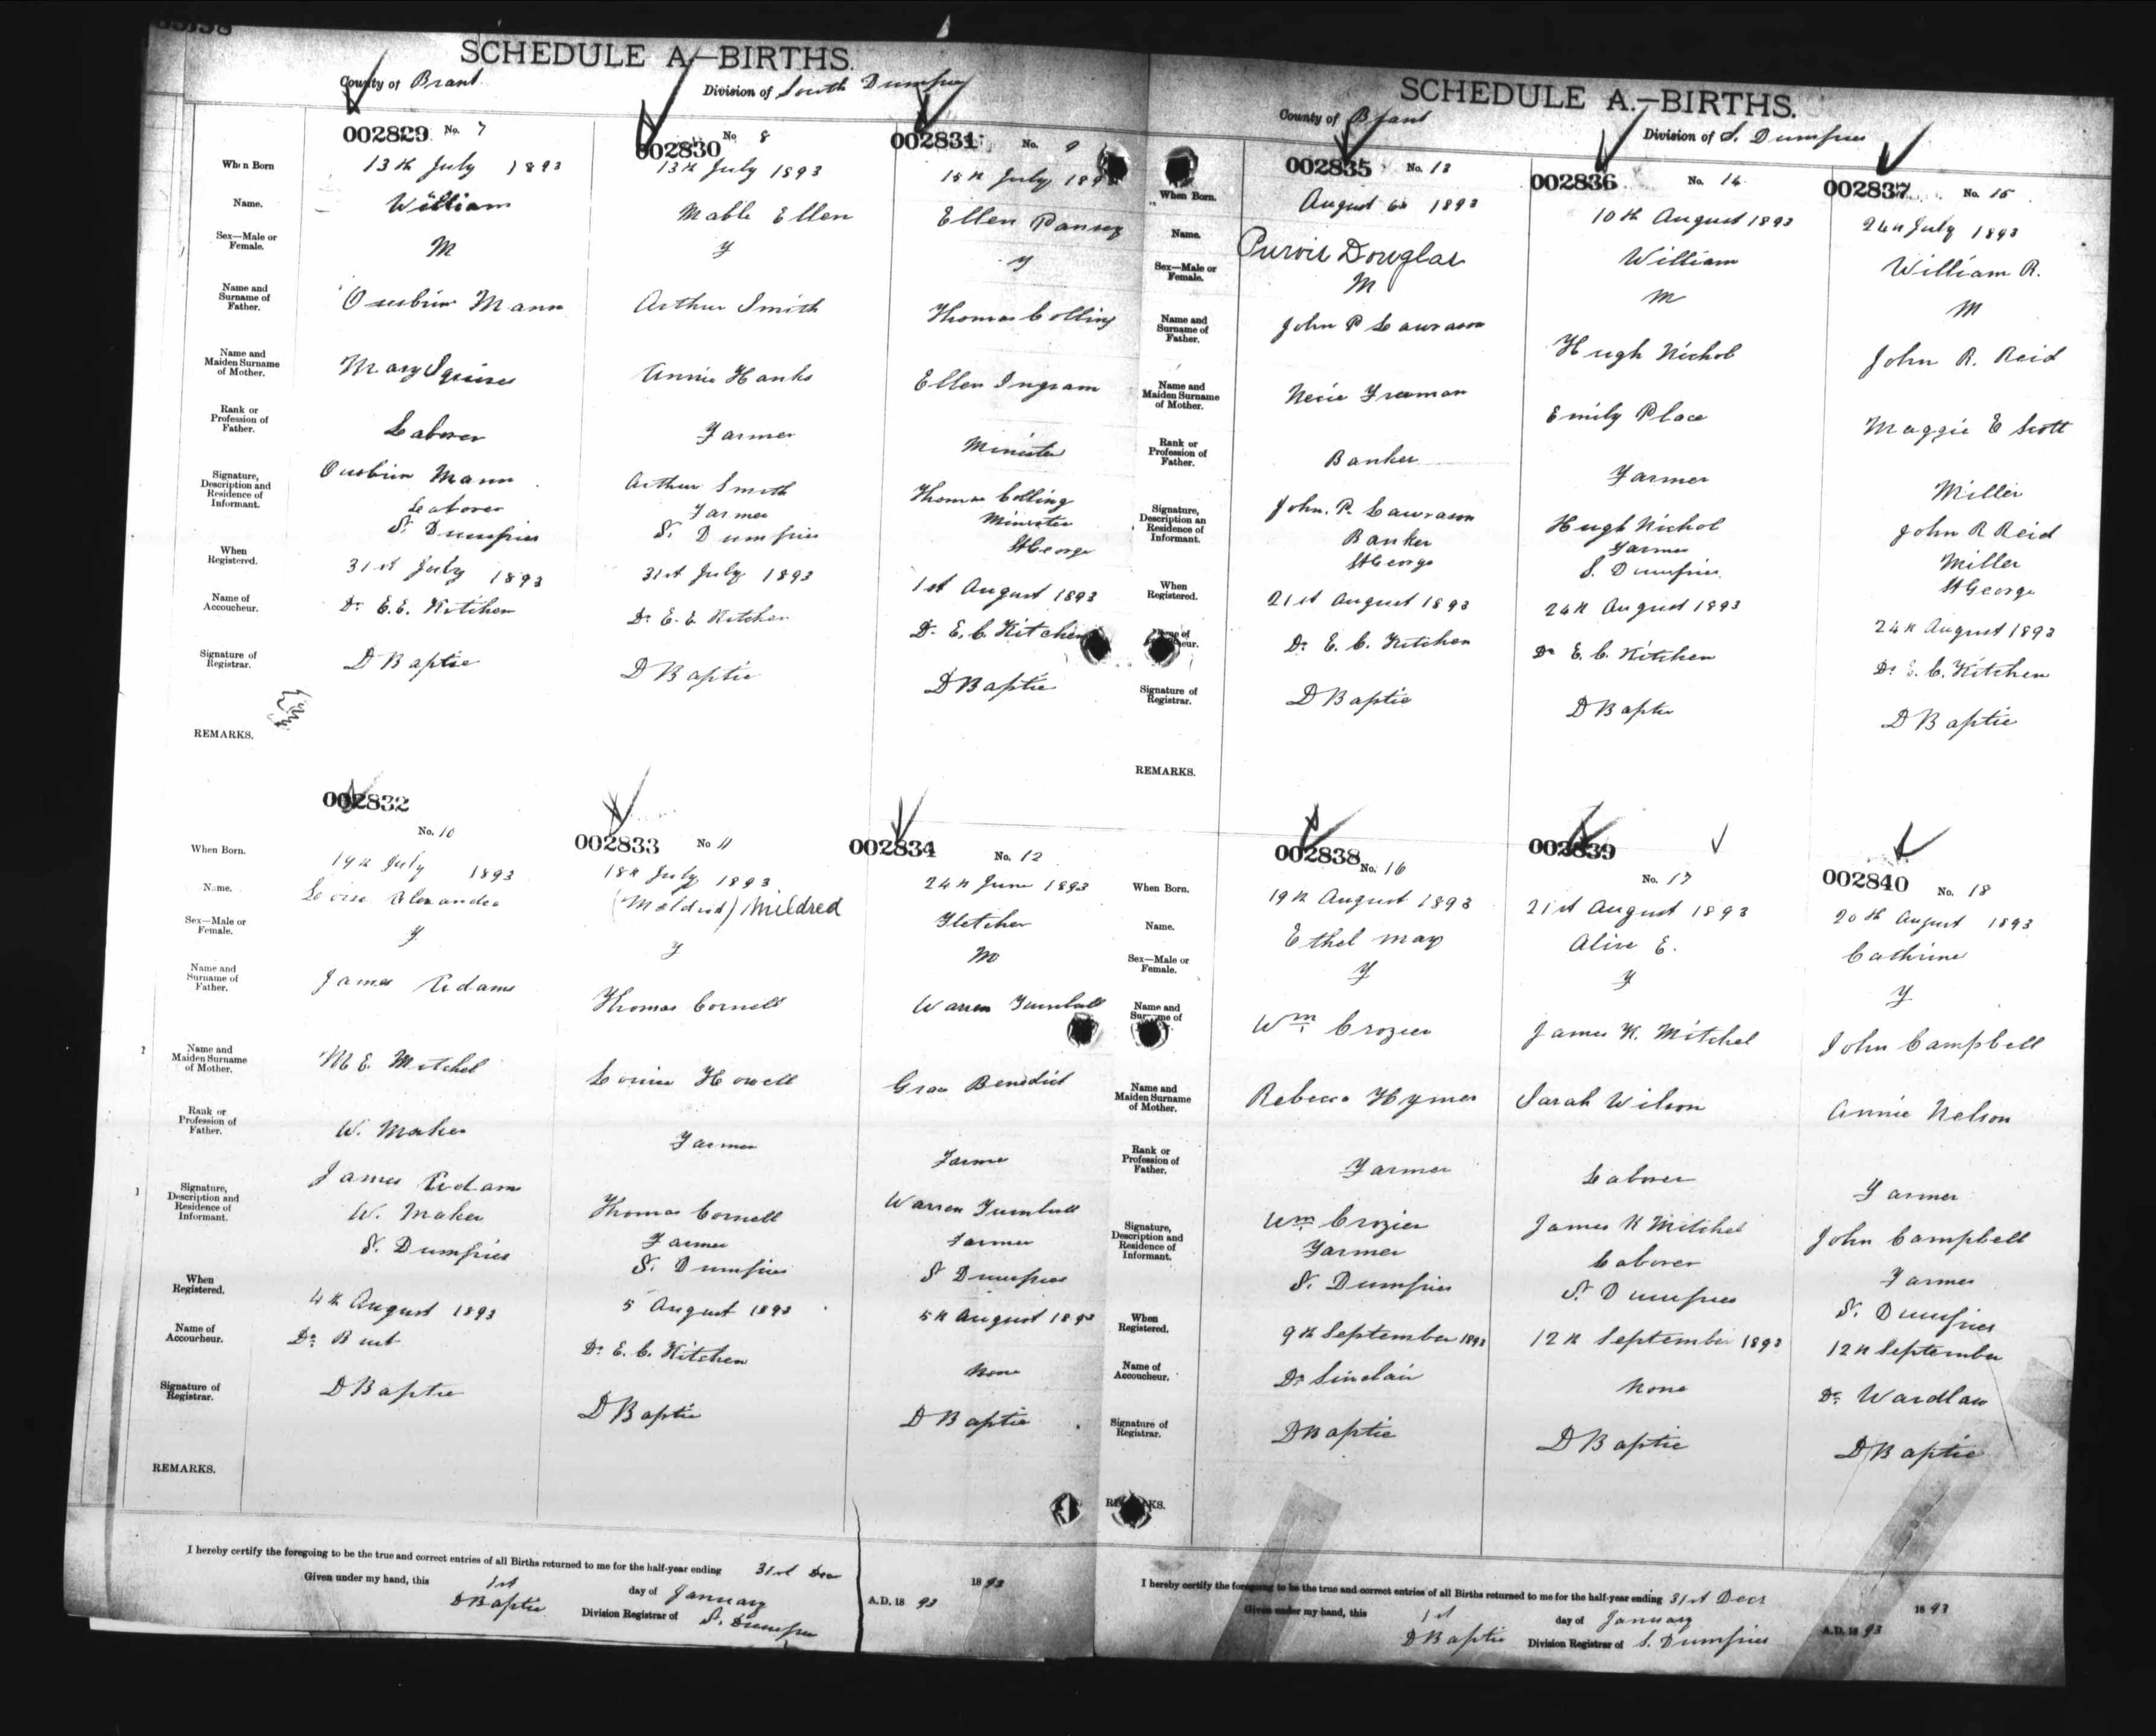 SCHEDULE A.—BIRTHS.
County of Brant
Division of South Dumfries
002829 No. 7
When Born 13th July 1893
Name. William
Sex—Male or Female. M
Name and Surname of Father. Mann
Name and Maiden Surname of Mother. Mary Squires
Rank or Profession of Father. Laborer
Signature, Description and Residence of Informant. Mann
Laborer
S. Dumfries
When Registered. 31st July 1893
Name of Accoucheur. Dr. E. E. Kitchen
Signature of Registrar. D Baptie
REMARKS.
002830 No 8
13th July 1893
Mable Ellen
F
Arthur Smith
Annie Hanks
Farmer
Arthur Smith
Farmer
S. Dumfries
31st July 1893
Dr. E. E. Kitchen
D Baptie
002831 No. 9
15th July 1893
Ellen Pansey
F
Thomas Colling
Ellen Ingram
Minister
Thomas Colling
Minister
St George
1st August 1893
Dr. E. C. Kitchen
D Baptie
002832
No. 10
When Born. 19th July 1893
Name. Alexandra
Sex—Male or Female. F
Name and Surname of Father. James Adams
Name and Maiden Surname of Mother. M E. Mitchel
Rank or Profession of Father. W. Maker
Signature, Description and Residence of Informant. James Adams
W. Maker
S. Dumfries
When Registered. 4th August 1893
Name of Accoucheur. Dr. Burt
Signature of Registrar. D Baptie
REMARKS.
002833 No 11
18th July 1893
(Meldred) Mildred
F
Thomas Cornell
Louisa Howell
Farmer
Thomas Cornell
Farmer
S. Dumfries
5 August 1893
Dr. E. C. Kitchen
D Baptie
002834 No. 12
24th June 1893
Fletcher
M
Warren Turnbull
Grace Benedict
Farmer
Warren Turnbull
Farmer
S Dumfries
5th August 1893
None
D Baptie
I hereby certify the foregoing to be the true and correct entries of all Births returned to me for the half-year ending 31st Dec 1893
Given under my hand, this 1st day of January A.D. 1893
D Baptie Division Registrar of S. Dumfries
SCHEDULE A.—BIRTHS.
County of Brant
Division of S. Dumfries
002835 No. 13
When Born. August 6th 1893
Name. Purvis Douglas
Sex—Male or Female. M
Name and Surname of Father. John P Lawrason
Name and Maiden Surname of Mother. Freeman
Rank or Profession of Father. Banker
Signature, Description an Residence of Informant. John. P. Lawrason
Banker
St George
When Registered. 21st August 1893
Dr. E. C. Kitchen
Signature of Registrar. D Baptie
REMARKS.
002836 No. 14
10th August 1893
William
M
Hugh Nichol
Emily Place
Farmer
Hugh Nichol
Farmer
S. Dumfries
24th August 1893
Dr E. C. Kitchen
D Baptie
002837 No. 15
24th July 1893
William R.
M
John R. Reid
Maggie E Scott
Miller
John R Reid
Miller
St George
24th August 1893
Dr. E. C. Kitchen
D Baptie
002838 No. 16
When Born. 19th August 1893
Name. Ethel May
Sex—Male or Female. F
Name and Surname of Wm Crozier
Name and Maiden Surname of Mother. Rebecca Hymers
Rank or Profession of Father. Farmer
Signature, Description and Residence of Informant. Wm Crozier
Farmer
S. Dumfries
When Registered. 9th September 1893
Name of Accoucheur. Dr Sinclair
Signature of Registrar. D Baptie
002839
No. 17
21st August 1893
Alive E.
F
James K. Mitchel
Sarah Wilson
Laborer
James K Mitchel
Laborer
S. Dumfries
12th September 1893
None
D Baptie
002840 No. 18
20th August 1893
Cathrine
F
John Campbell
Annie Nelson
Farmer
John Campbell
Farmer
S. Dumfries
12th September
Dr. Wardlaw
D Baptie
I hereby certify the foregoing to be the true and correct entries of all Births returned to me for the half-year ending 31st Decr 1893
Given under my hand, this 1st day of January A.D. 1893
D Baptie Division Registrar of S. Dumfries